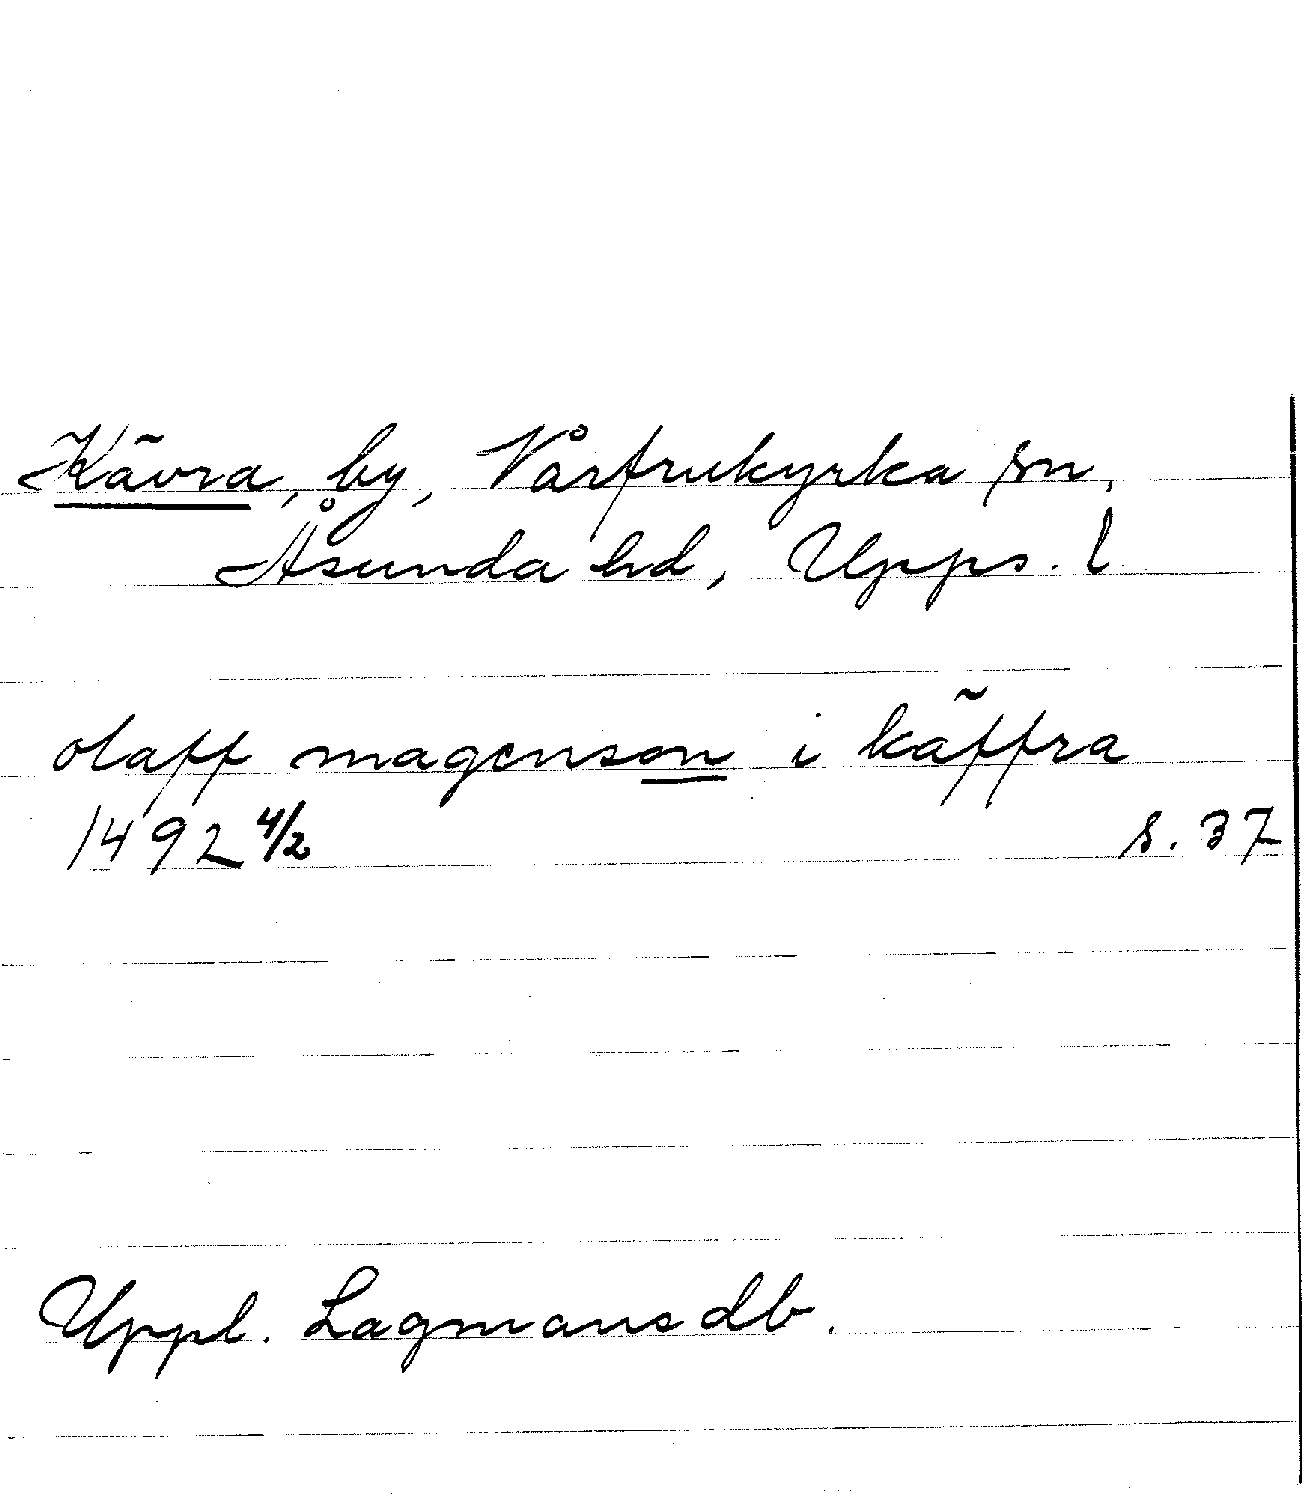 Kävra, by, Vårfrukyrka sn,
Åsunda hd, Upps. l
olaff magenson i käffra
1492 4/2 s. 37
Uppl. Lagmansdb.